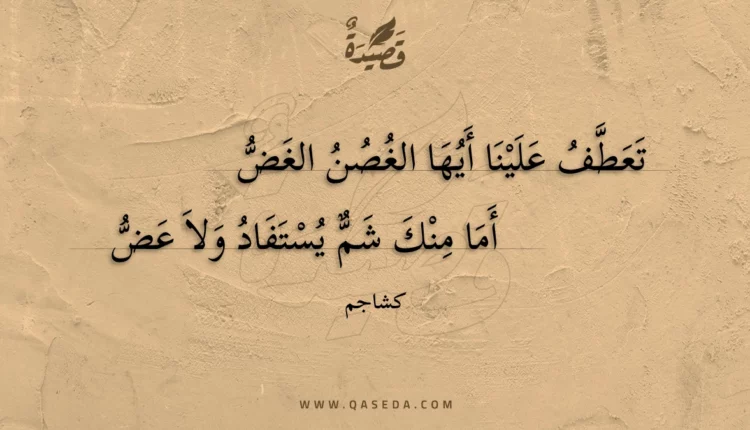 قَصِيْدَةٌ
تَعَطَّفُ عَلَيْنَا أَيُهَا الغُصُنُ الغَضُّ
أَمَا مِنْكَ شَمٌّ يُسْتَفَادُ وَلاَ عَضُّ
كشاجم
WWW.QASEDA.COM